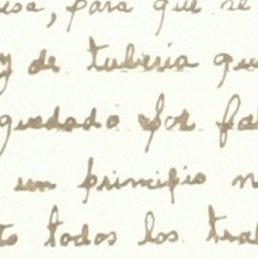 usa, para que se
y de tuberia que
quedado por fal
un principio n
to todos los tra